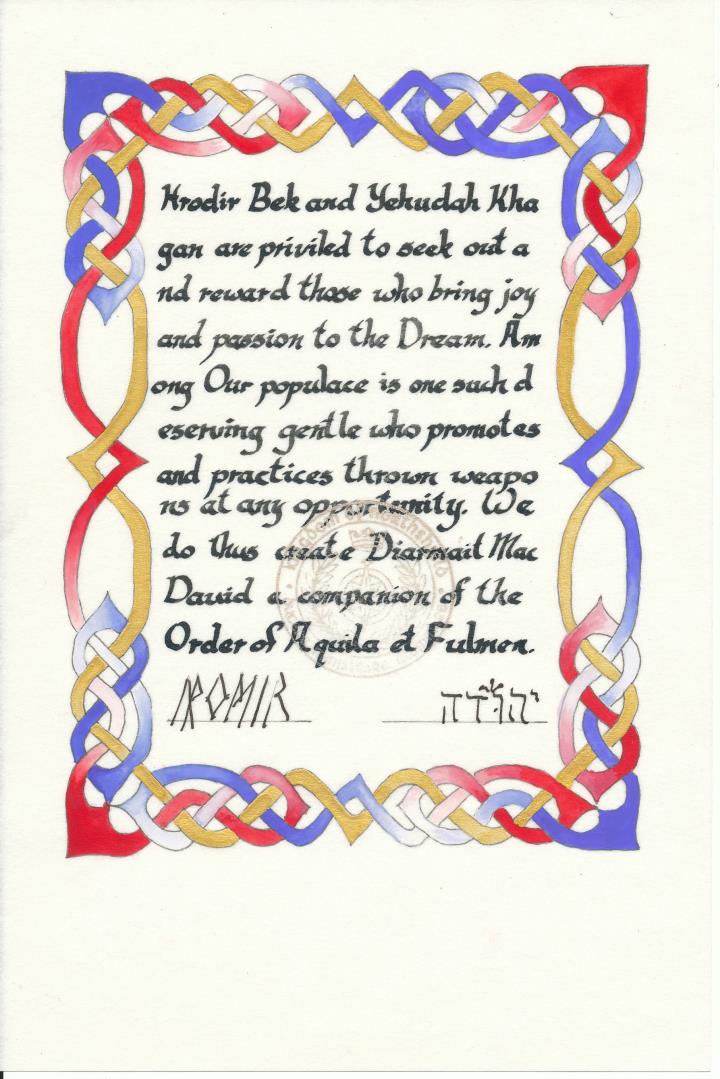 Hrodir Bek and Yehudah Kha
gan are priviled to seek out a
nd reward those who bring joy
and passion to the Dream. Am
ong Our populace is one such d
eserving gentle who promotes
and practices thrown weapo
ns at any opportunity. We
do thus create Diarmait Mac
David a companion of the
Order of Aquila et Fulmen.
יהודה